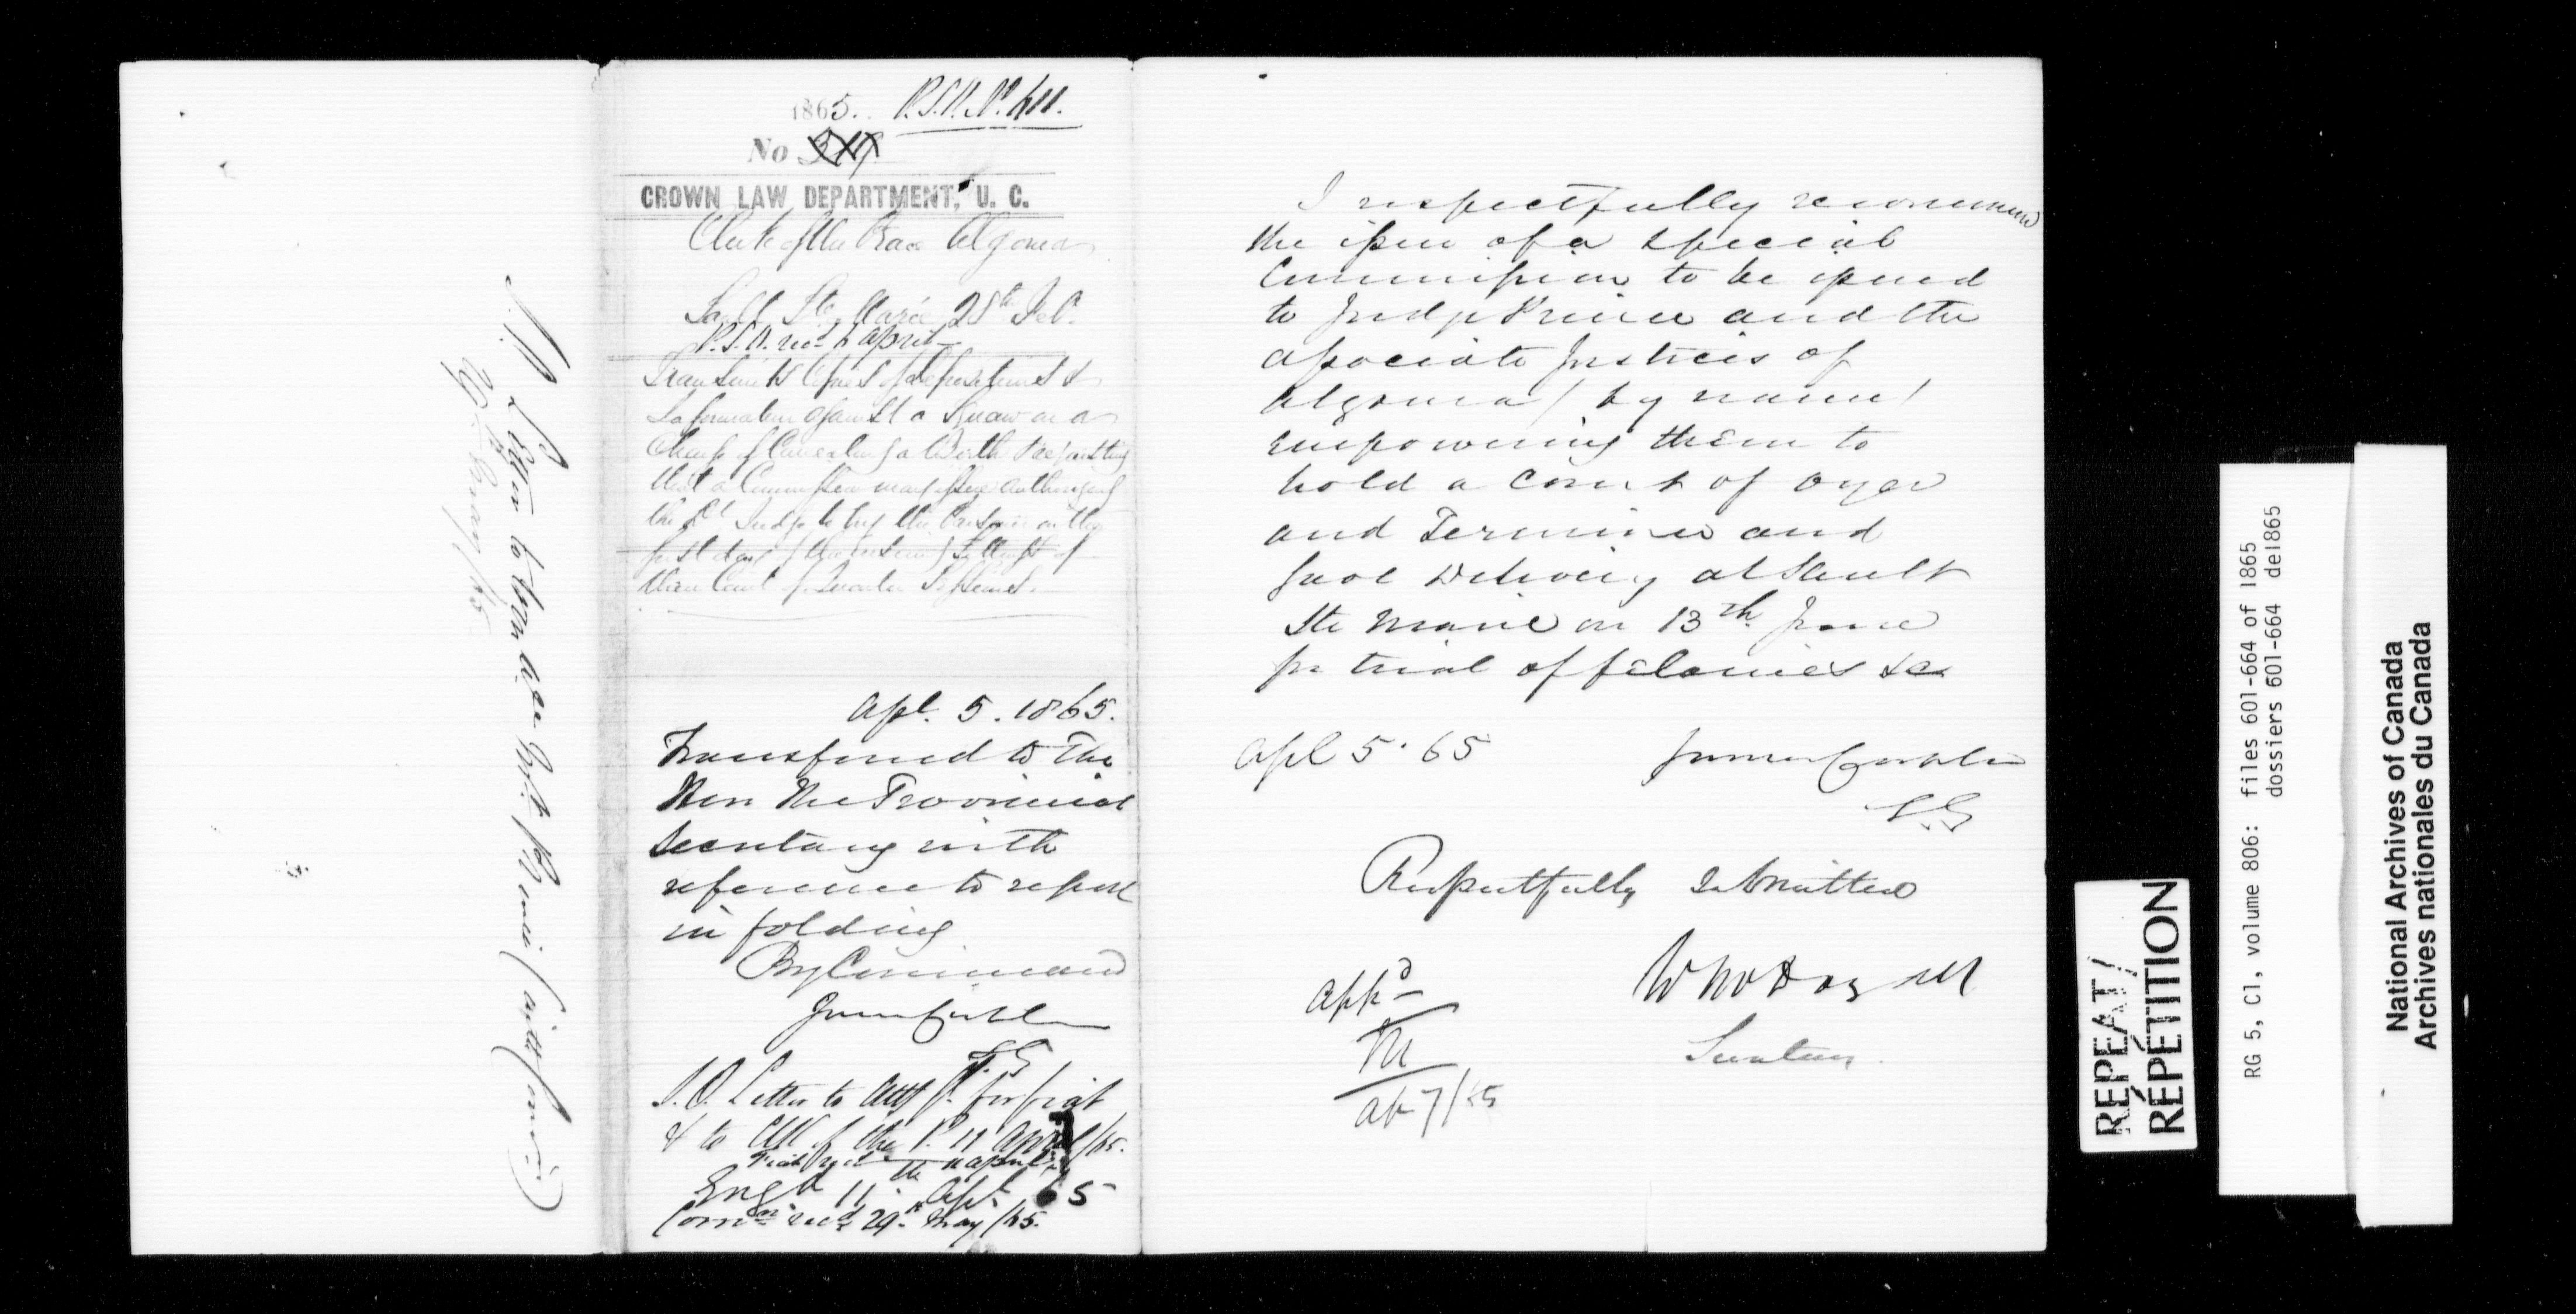 S.O. Letter to Hon. Col. Prince (with Comn.)
29 May/65
1865. P.S.O. No. 611.
No
CROWN LAW DEPARTMENT, U. C.
Clerk of the Peace Algoma
Sault Ste Marie 28th Feb.
P.S.O. recd 6 April
Transmits Copies of depositions &
Information against a Squaw on a
Charge of Concealing a Birth & requesting
that a Commission may issue authorizing
the Dt Judge to try the Prisoner on the
first day of the ensuing Sittings of
their Court of Quarter Sessions.
Apl. 5. 1865.
Transferred to The
Hon The Provincial
Secretary with
reference to report
in folding
By Command
James Cockburn
S.G.
S.O. Letter to Atty Gl. for fiat
& to Clk of the P. 11 April/65.
Fiat recd 11 April
Engd 11th Apl 65
Comn recd 29th May/65.
I respectfully recommend
the issue of a special
Commission to be issued
to Judge Prince and the
associate Justices of
Algoma (by name)
empowering them to
hold a Court of Oyer
and Terminer and
Gaol Delivery at Sault
Ste Marie on 13th June
for trial of felonies &c
Apl 5. 65
James Cockburn
S.G.
Respectfully submitted
W McDougall
Secretary.
Appd
M
Ap 7/65
REPEAT/
RÉPÉTITION
RG 5, C1, volume 806: files 601-664 of 1865
dossiers 601-664 de1865
National Archives of Canada
Archives nationales du Canada